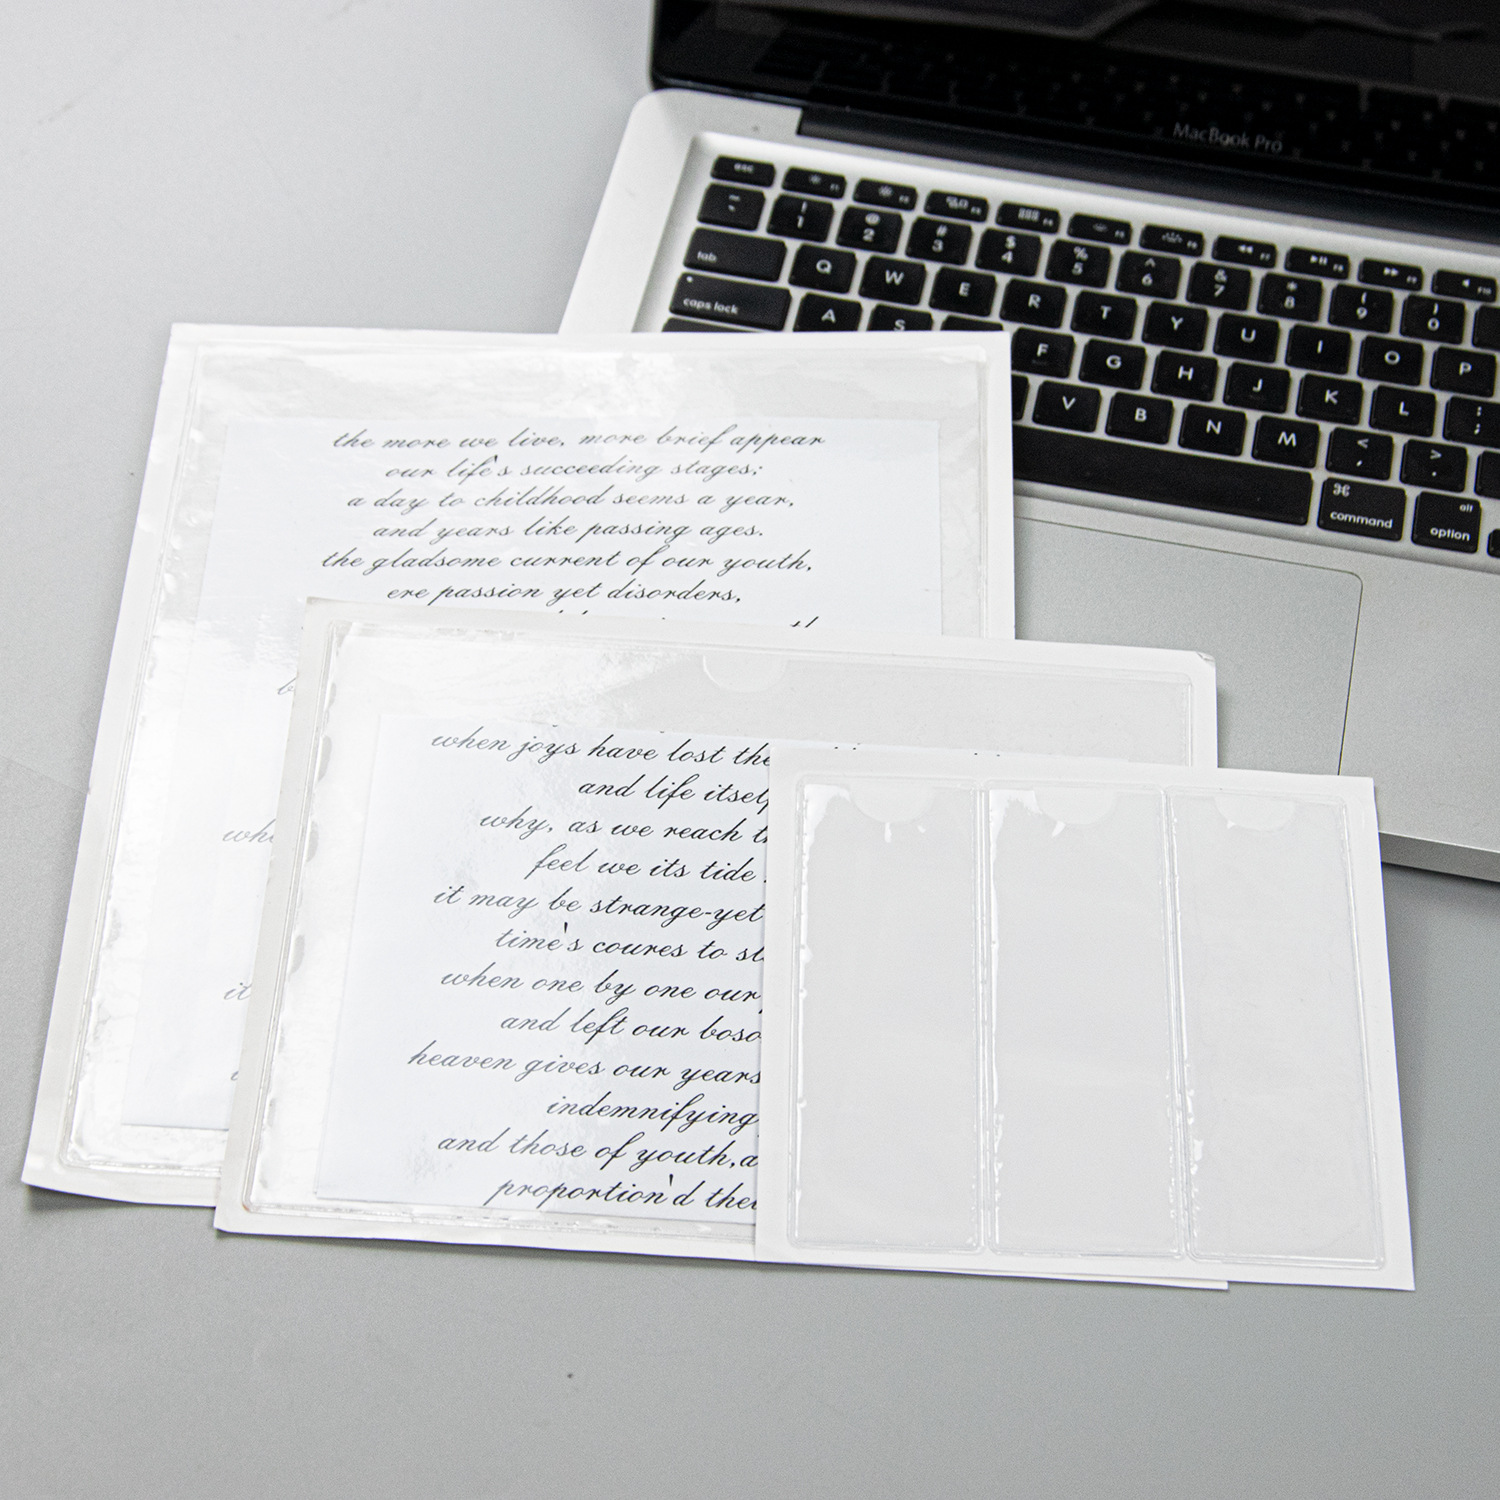 MacBook Pro
esc F1 F2 F3 F4 F5 F6 F7 F8 F9 F10
~ ` ! 1 @ 2 # 3 $ 4 % 5 ^ 6 & 7 * 8 ( 9 ) 0
tab Q W E R T Y U I O P
caps lock A S F G H J K L : ;
V B N M < , > .
⌘ command alt option
the more we live, more brief appear
our life's succeeding stages;
a day to childhood seems a year,
and years like passing ages.
the gladsome current of our youth,
ere passion yet disorders,
when joys have lost the
and life itself
why, as we reach
feel we its tide
it may be strange-yet
time's coures to
when one by one our
and left our
heaven gives our years
indemnifying
and those of youth, a
proportion'd